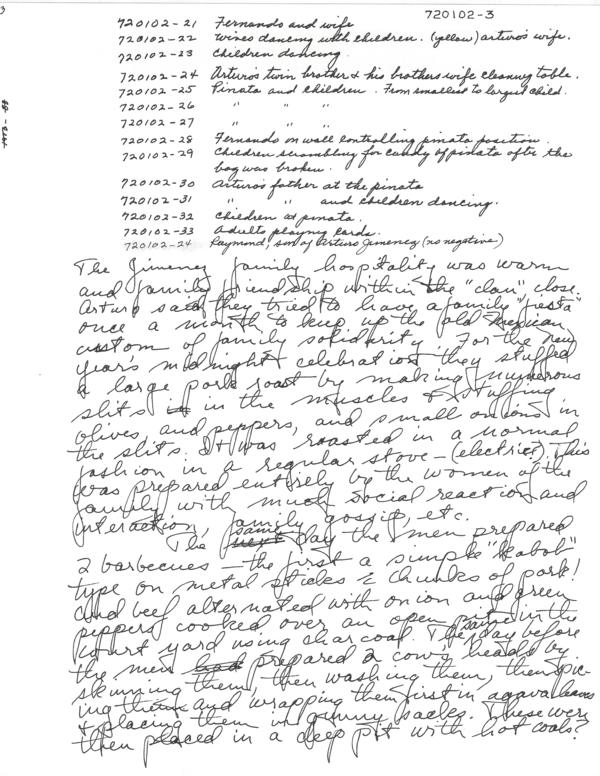 720102-3
720102-21 Fernando and wife
720102-22 Wives dancing with children. (yellow) arturo's wife.
720102-23 Children dancing
720102-24 Arturo's twin brother & his brothers wife cleaning table.
720102-25 Pinata and children. From smallest to largest child.
720102-26 " " "
720102-27 " " "
720102-28 Fernando on wall controlling pinata position.
720102-29 Children scrambling for candy of pinata after the
bag was broken.
720102-30 Arturo's father at the pinata
720102-31 " " and children dancing.
720102-32 Children at pinata.
720102-33 Adults playing cards.
720102-24 Raymond, son of Arturo Jimenez (no negative)
The Jimenez family hospitality was warm
and family friendship within the "clan" close.
Arturo said they tried to have a family "fiesta"
once a month to keep up the old Mexican
custom of family solidarity. For the new
year's midnight celebration they stuffed
a large pork roast by making numerous
slits in the muscles & stuffing
olives and peppers, and small onions in
the slits. It was roasted in a normal
fashion in a regular stove - (electric). This
was prepared entirely by the women of the
family with much social reaction and
interaction, family gossip, etc.
The same day the men prepared
2 barbecues - the first a simple "kabob"
type on metal sticks & chunks of pork!
and beef alternated with onion and green
peppers cooked over an open in the
court yard using charcoal. The day before
the men had prepared 2 cow's heads by
skinning them, then washing them, then spic-
ing them and wrapping them first in agava leaves
& placing them in gunny sacks. These were
then placed in a deep pit with hot coals?